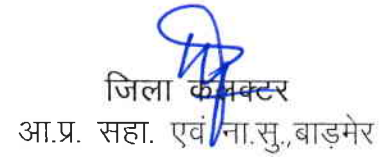 जिला कलक्टर
आ.प्र. सहा. एवं ना.सु.,बाड़मेर